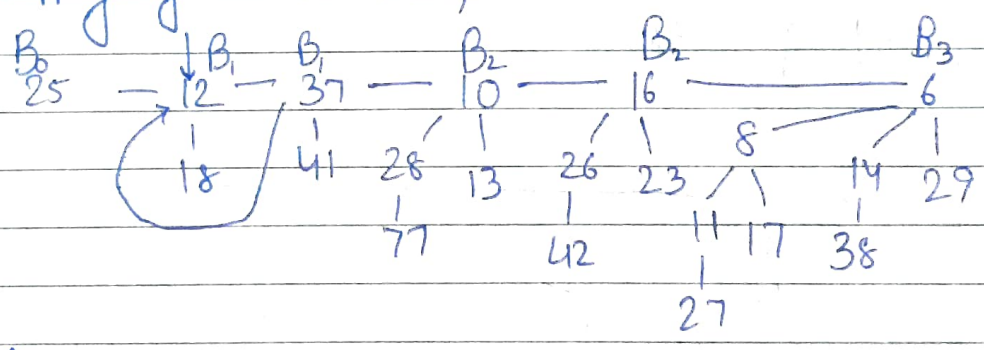 B₀ B₁ B₁ B₂ B₂ B₃
25 12 37 10 16 6
8
18 41 28 13 26 23 14 29
77 42 11 17 38
27